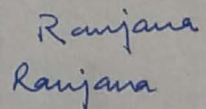 Ranjana
Ranjana